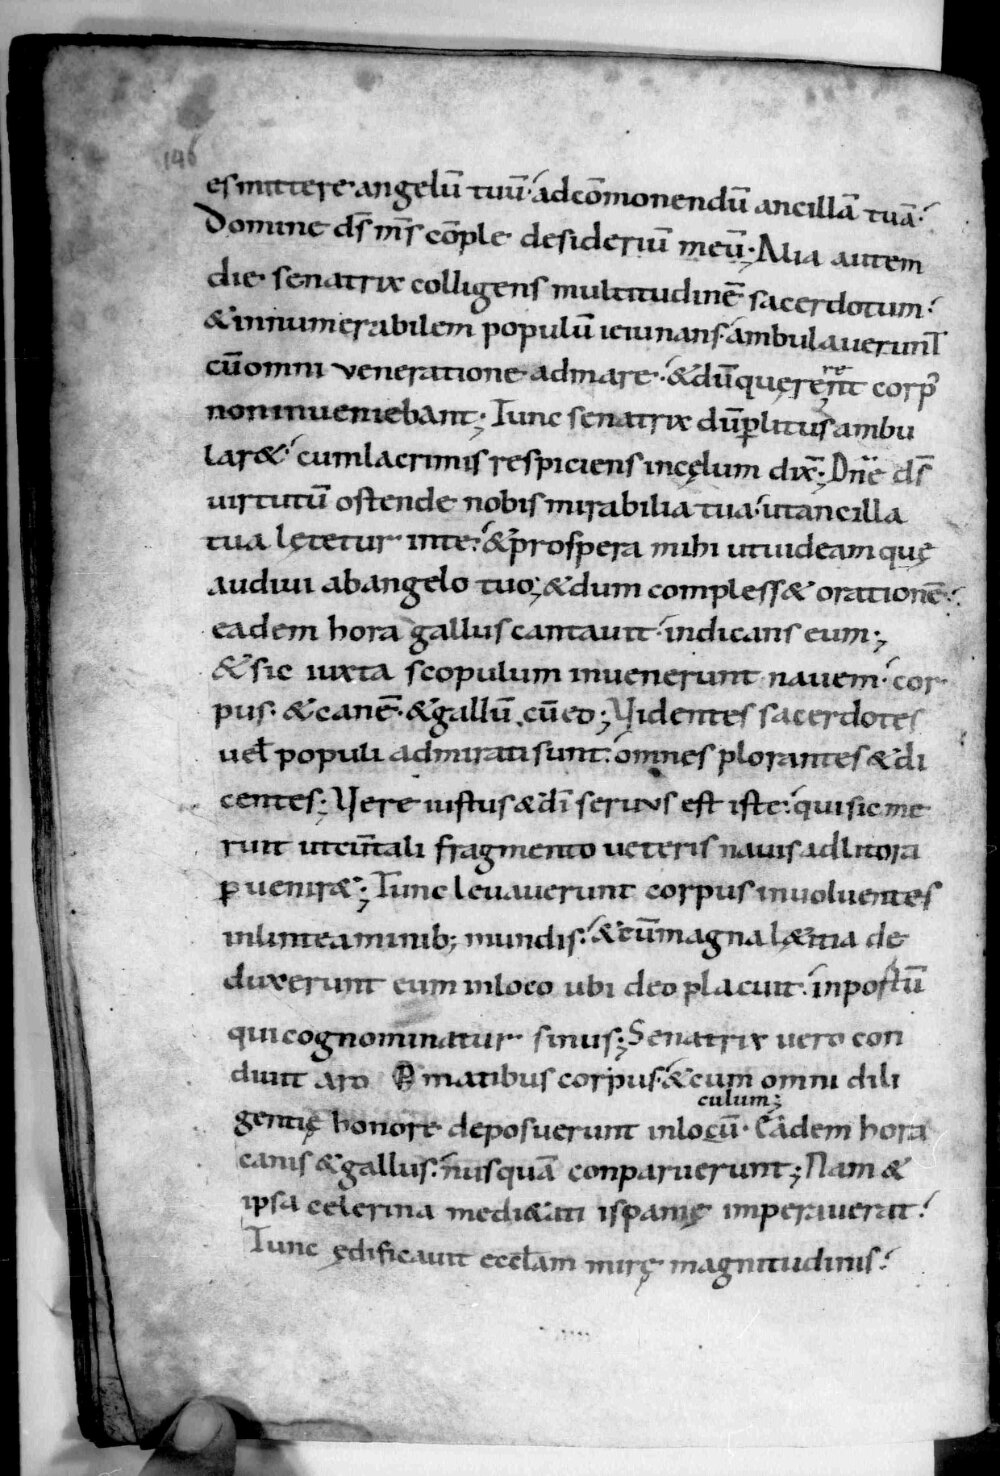 146
es mittere angelū tuū· ad cōmonendū ancillā tuā·
Domine dš mš cōple desideriū meū; Alia autem
die senatrix colligens multitudinē sacerdotum·
& innumerabilem populū ieiunans· ambulauerunt
cū omni ueneratione ad mare· & dū quęrerent corp̄
non inueniebant; Tunc senatrix dū p̄ litus ambu
lar&· cum lacrimis respiciens in cęlum dix̄; Dn̄e dš
uirtutū ostende nobis mirabilia tua· ut ancilla
tua lętetur in te· & prospera mihi ut uideam quę
audiui ab angelo tuo; & dum compless& orationē·
eadem hora gallus cantauit· indicans eum;
& sic iuxta scopulum inuenerunt nauem· cor
pus· & canē· & gallū cū eo; Videntes sacerdotes
uel populi admirati sunt· omnes plorantes & di
centes; Vere iustus & dī seruus est iste· qui sic me
ruit ut cū tali fragmento ueteris nauis ad litora
ꝑuenir&; Tunc leuauerunt corpus inuoluentes
in linteaminib; mundis· & cū magna l&itia de
duxerunt eum in loco ubi deo placuit· in postū
qui cognominatur sinus; Senatrix uero con
diuit aro matibus corpus· & cum omni dili
culum;
gentię honore deposuerunt in locū· Eadem hora
canis & gallus· nusquā conparuerunt; Nam &
ipsa celerina medi&ati ispanię imperauerat·
Tunc ędificauit eccłam mirę magnitudinis·